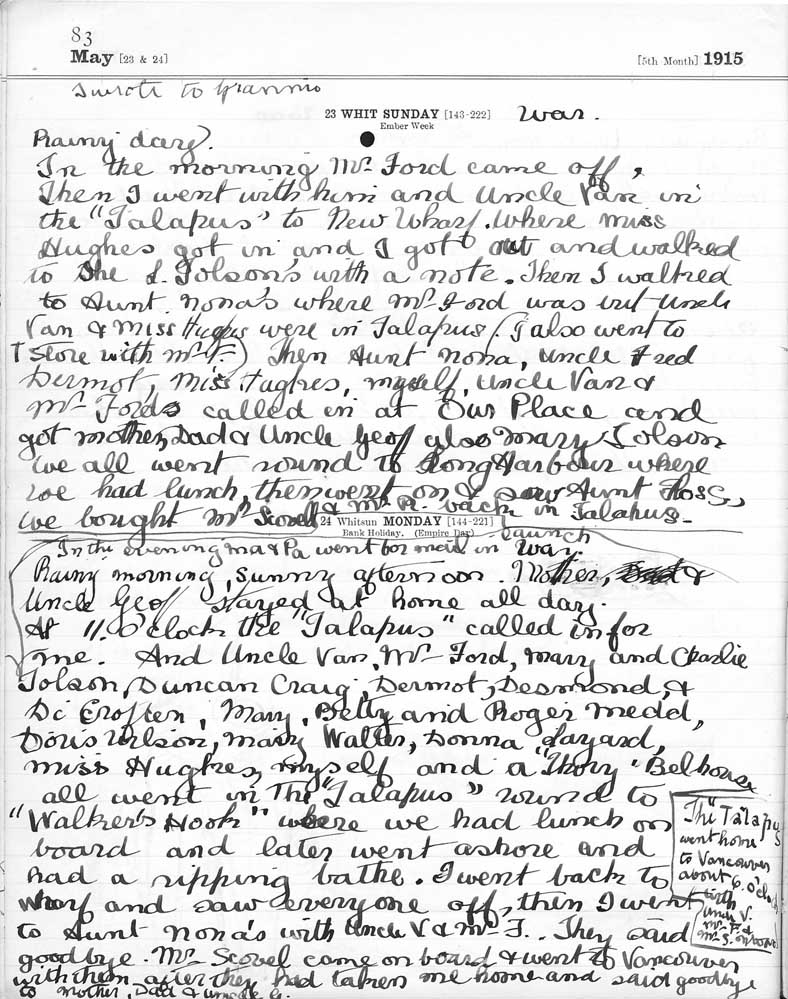 83
May [23 & 24] [5th Month] 1915
I wrote to Grannie
23 WHIT SUNDAY [143-222] War.
Ember Week
Rainy day.
In the morning Mr Ford came off,
Then I went with him and Uncle Van in
the "Talapus" to New Wharf. where miss
Hughes got in and I got out and walked
to the S. Tolson's with a note. Then I walked
to Aunt Nona's where Mr Ford was but Uncle
Van & Miss Hughes were in Talapus (I also went to
T Store with Mr F.) Then Aunt Nona, Uncle Fred
Dermot, Miss Hughes, myself, Uncle Van &
Mr Fords called in at Our Place and
got mother, Dad & Uncle Geof also Mary Tolson
we all went round to Long Harbour where
we had lunch, then went on & saw Aunt Floss,
we bought Mr Scovell & Mr R. back in Talapus.
24 Whitsun MONDAY [144-221]
Bank Holiday. (Empire Day)
In the evening ma & Pa went for mail in launch
War.
Rainy morning, sunny afternoon. Mother, &
Uncle Geof stayed at home all day.
At 11. O'clock the "Talapus" called in for
me. And Uncle Van, Mr Ford, Mary and Charlie
Tolson, Duncan Craig, Dermot, Desmond, &
Di Crofton, Mary, Betty and Roger Medd,
Doris Wilson, Mary Walter, Donna Layard,
miss Hughes, myself and a "Thory" Belhouse
all went in The "Talapus" round to
"Walker's Hook" where we had lunch on
board and later went ashore and
had a ripping bathe. I went back to
wharf and saw everyone off, then I went
to Aunt Nona's with Uncle V & Mr F. They said
goodbye. Mr Scovel came on board & went to Vancouver
with them after they had taken me home and said goodbye
to Mother, Dad & Uncle G.
The "Talapus
went home
to Vancouver
about 6. O'clock
with
Uncle V.
Mr F. &
Mr S. on board